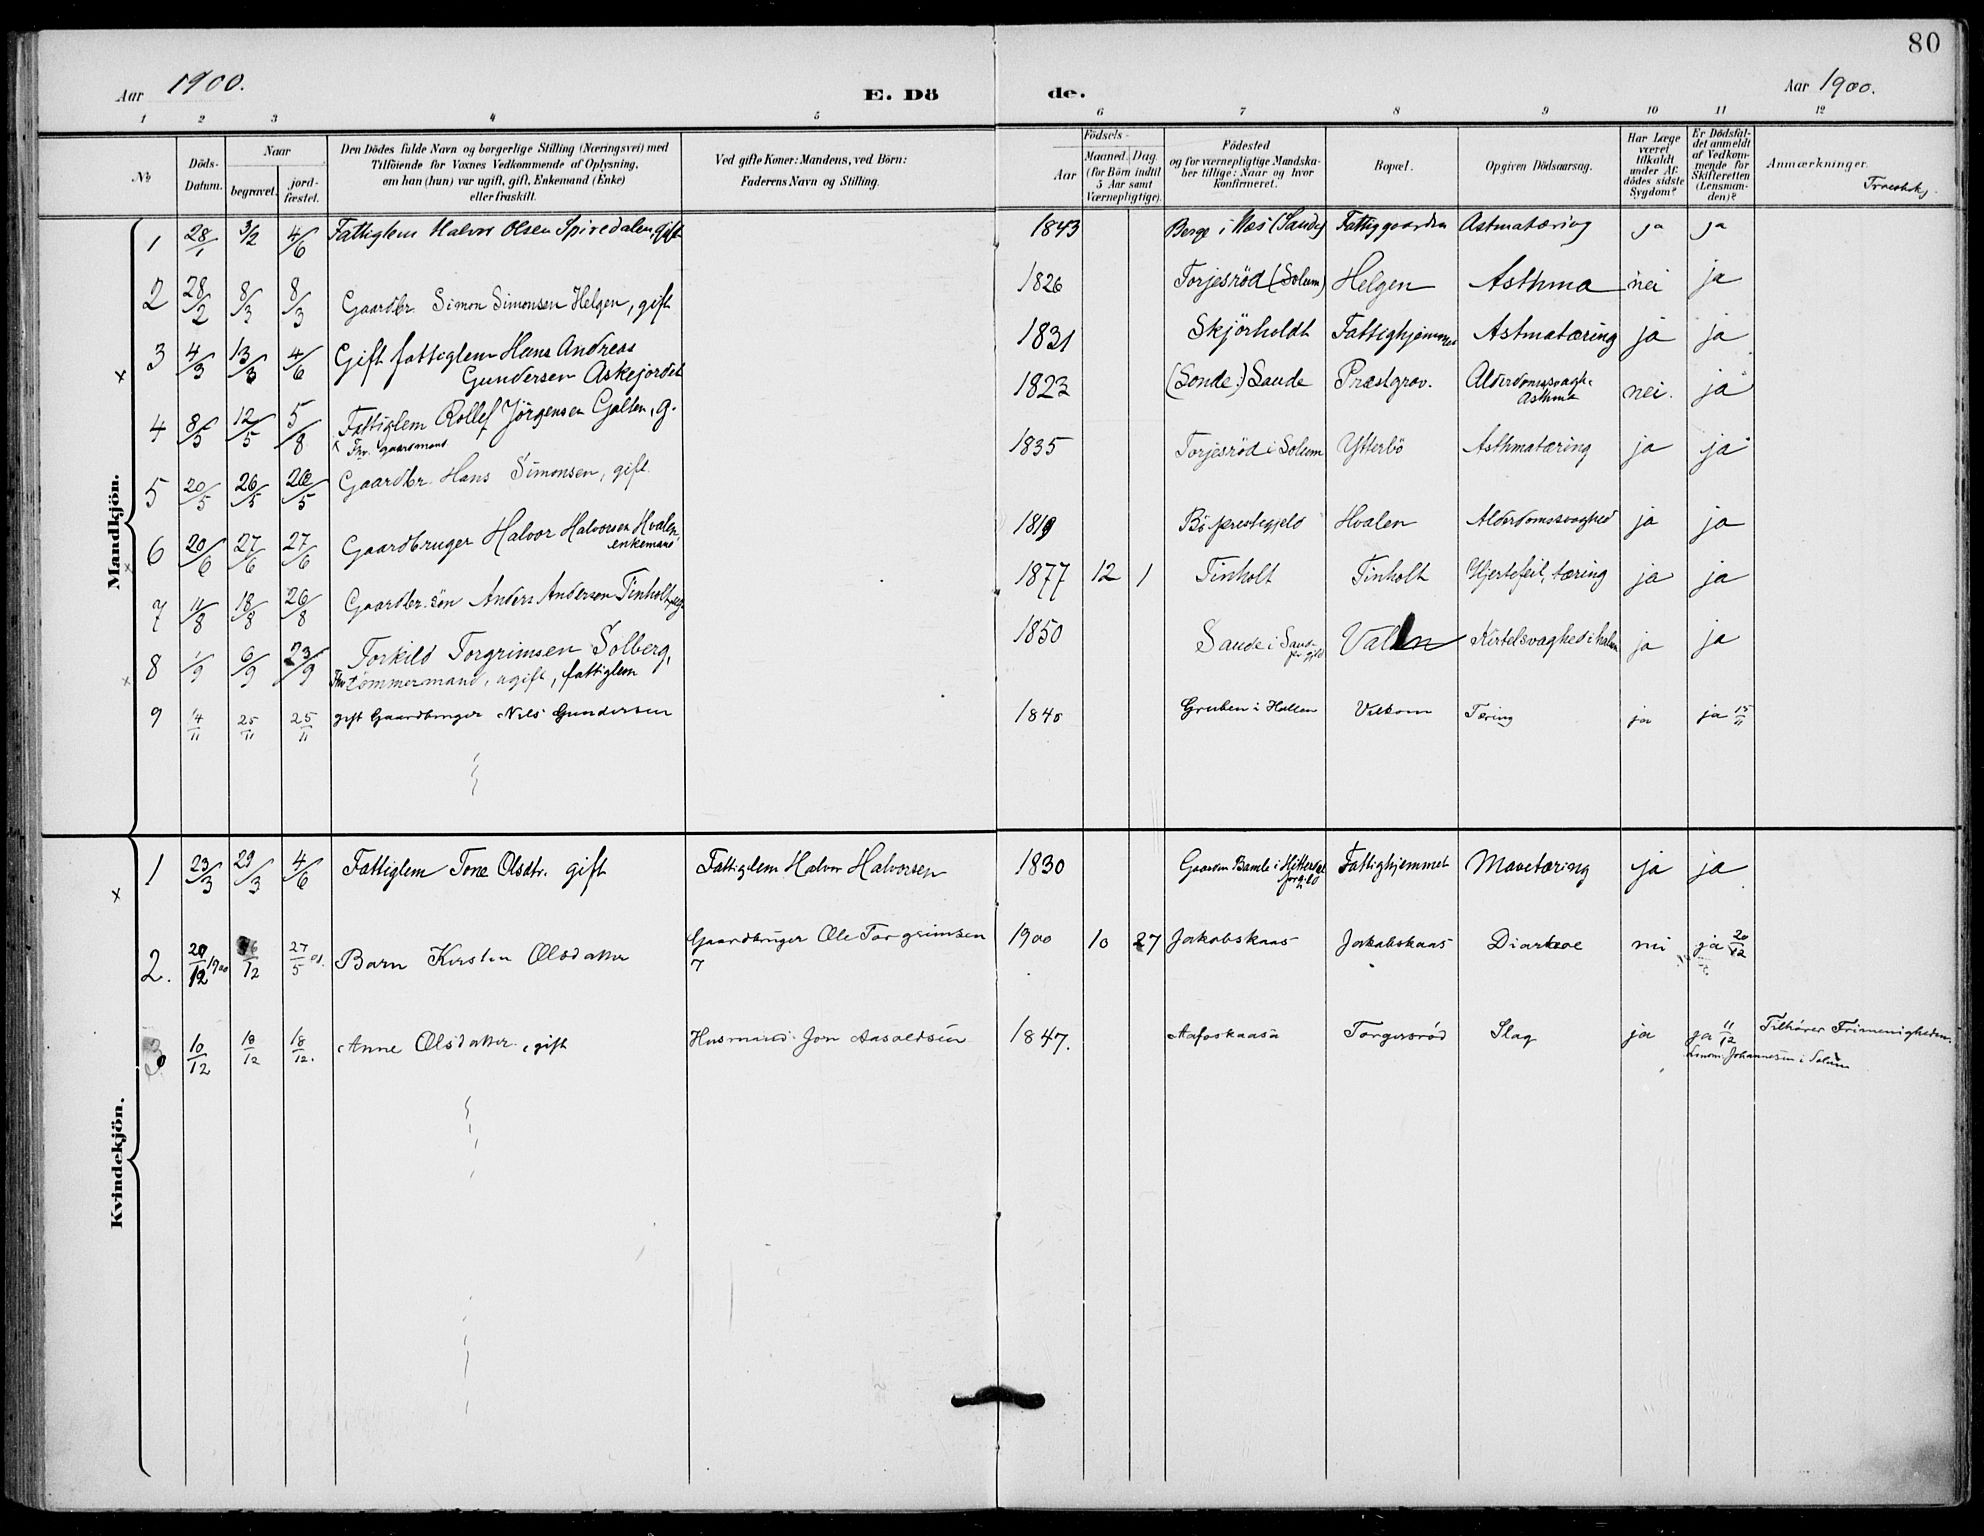 80
Aar 1900.
E. Dö
de.
Aar 1900.
1 2 3 4 5 6 7 8 9 10 11 12
No.
Döds-Datum.
Naar
begravet.
jordfæstet.
Den Dödes fulde Navn og borgerlige Stilling (Næringsvei) med
Tilföiende for Voxnes Vedkommende af Oplysning,
om han (hun) var ugift, gift, Enkemand (Enke)
eller fraskilt.
Ved gifte Koner: Mandens, ved Börn:
Faderens Navn og Stilling.
Födsels-
Aar
Maaned. Dag.
(for Börn indtil
5 Aar samt
Værnepligtige).
Födested
og for værnepligtige Mandskaber tillige: Naar og hvor
Konfirmeret.
Bopæl.
Opgiven Dödsaarsag.
Har Læge været tilkaldt under Afdödes sidste Sygdom?
Er Dödsfaldet anmeldt af Vedkommende for Skifteretten (Lensmanden)?
Anmærkninger.
Mandkjön.
1 28/1 3/2 4/6 Fattiglem Halvor Olsen Spiredalen gift 1843 Berge i Næs (Saude) Fattiggaarden Astmatæring ja ja
2 28/2 8/3 8/3 Gaardbr. Simon Simonsen Helgen, gift 1826 Torjesröd (Solum) Helgen Asthma nei ja
3 4/3 13/3 4/6 Gift fattiglem Hans Andreas
Gundersen Askejordet 1831 Skjörholdt Fattighjemmet Astmatæring ja ja
4 8/5 12/5 5/8 Fattiglem Rollef Jörgensen Galten, g.
Fhv. gaardmand 1823 (Sonde:) Saude Præstgrav. Alderdomssvagh.
Asthma nei. ja
5 20/5 26/5 26/5 Gaardbr. Hans Simonsen, gift 1835 Torjesröd i Solum Ytterbö Asthmatæring ja ja
6 20/6 27/6 27/6 Gaardbruger Halvor Halvorsen Hvalen,
enkemand 1819 Bö præstegjeld Hvalen Alderdomssvaghed ja ja
7 11/8 18/8 26/8 Gaardbr. sön Anders Anderson Tinholt, ug. 1877 12 1 Tinholt Tinholt Hjertefeil, tæring ja ja
8 1/9 6/9 23/9 Torkild Torgrimsen Solberg,
Fhv tömmermand, ugift, fattiglem 1850 Saude i Saude
pr.gjeld Valen Kirtelsvaghed i halsen ja ja
9 4/11 25/11 25/11 gift Gaardbruger Nils Gundersen 1840 Gruben i Hollen Valkom Tæring ja ja 15/11
Kvindekjön.
1 23/3 29/3 4/6 Fattiglem Tone Olsdtr. gift Fattiglem Halvor Halvorsen 1830 Gaarden Bamle i Hitterdal
prgjld Fattighjemmet Mavetæring ja ja
2. 20/12 1900 26/12 27/5 01. Barn Kirsten Olsdatter Gaardbruger Ole Torgrimsen 1900 10 27 Jakobskaas Jakobskaas Diarhoe nei ja 20/12
3 10/12 18/12 18/12. Anne Olsdatter, gift Husmand Jon Aasoldsen 1847. Aafoskaasa Torgersröd Slag ja ja 11/12 Tilhörer Frimenigheden.
Lensm. Johannesen i Solum